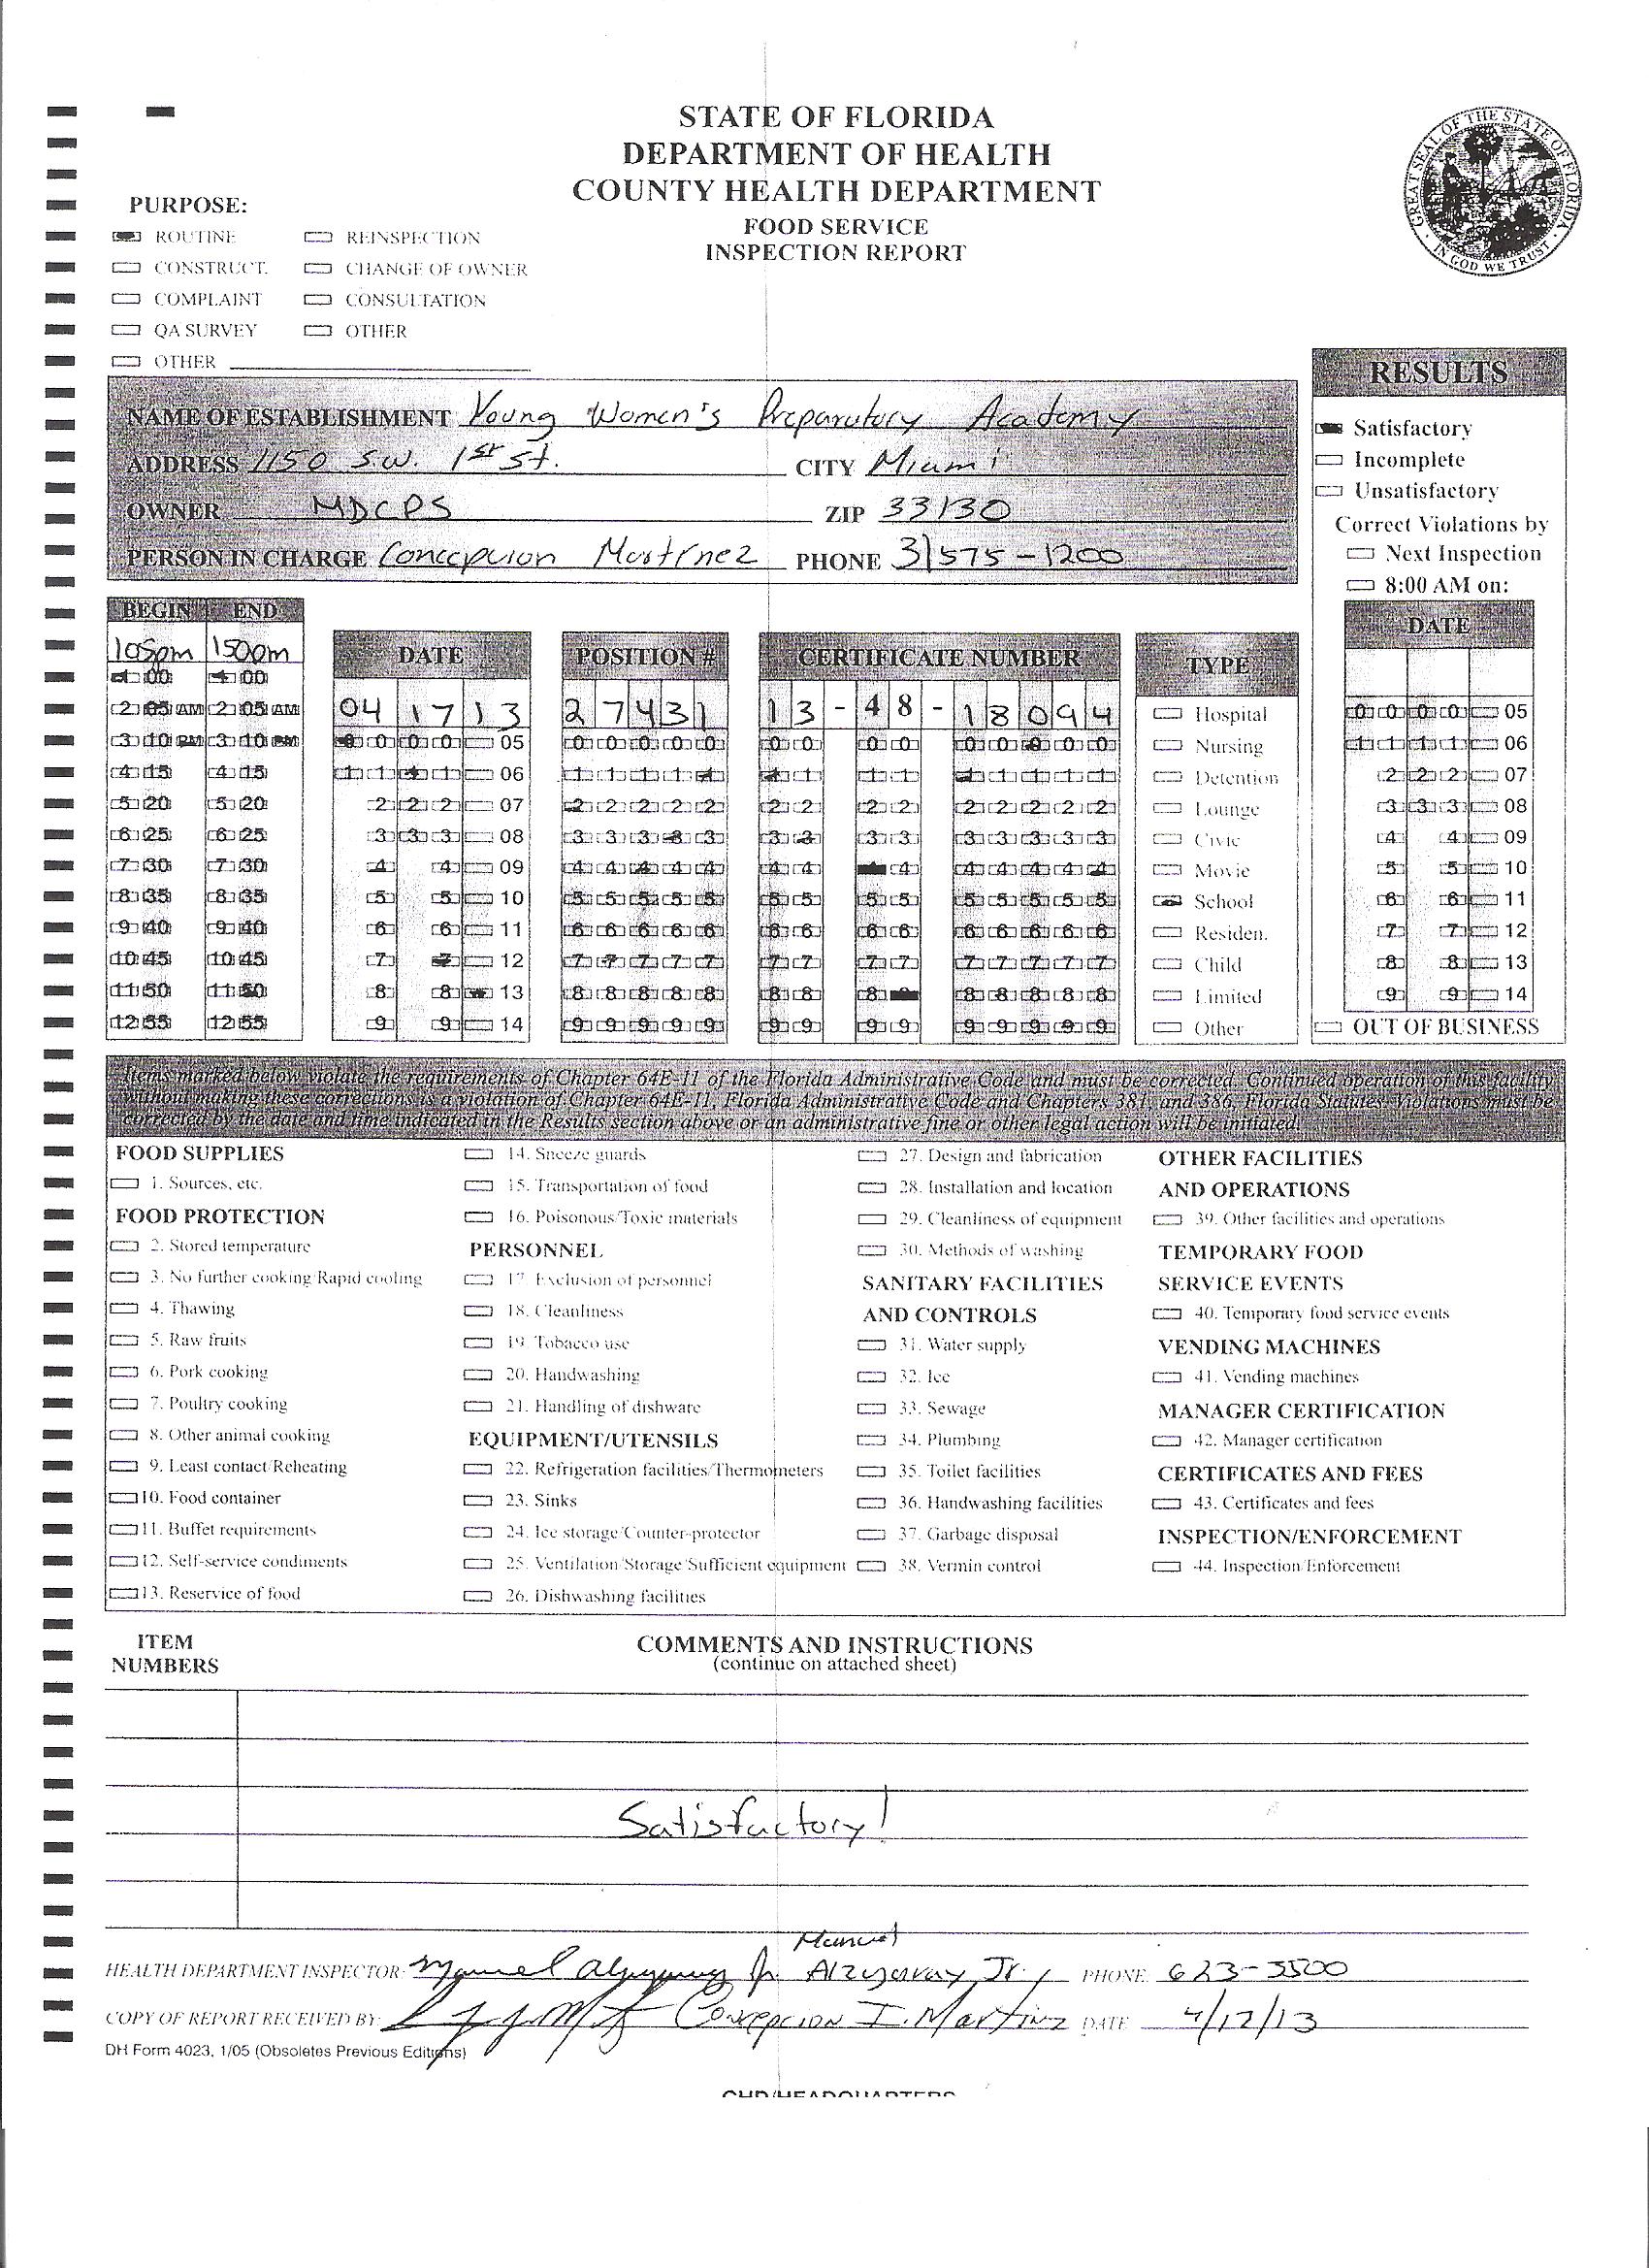 STATE OF FLORIDA
DEPARTMENT OF HEALTH
COUNTY HEALTH DEPARTMENT
FOOD SERVICE
INSPECTION REPORT
GREAT SEAL OF THE STATE OF FLORIDA
IN GOD WE TRUST
PURPOSE:
ROUTINE REINSPECTION
CONSTRUCT. CHANGE OF OWNER
COMPLAINT CONSULTATION
QA SURVEY OTHER
OTHER
NAME OF ESTABLISHMENT Young Women's Preparatory Academy
ADDRESS 1150 S.W. 1st St. CITY Miami
OWNER MDCPS ZIP 33130
PERSON IN CHARGE Concepcion Martinez PHONE 3/575-1200
RESULTS
Satisfactory
Incomplete
Unsatisfactory
Correct Violations by
Next Inspection
8:00 AM on:
DATE
BEGIN END
105pm 150pm
1 00 1 00
2 05 AM 2 05 AM
3 10 PM 3 10 PM
4 15 4 15
5 20 5 20
6 25 6 25
7 30 7 30
8 35 8 35
9 40 9 40
10 45 10 45
11 50 11 50
12 55 12 55
DATE
04 17 13
0 0 0 0 05
1 1 1 1 06
2 2 2 07
3 3 3 08
4 4 09
5 5 10
6 6 11
7 7 12
8 8 13
9 9 14
POSITION #
27431
0 0 0 0 0
1 1 1 1 1
2 2 2 2 2
3 3 3 3 3
4 4 4 4 4
5 5 5 5 5
6 6 6 6 6
7 7 7 7 7
8 8 8 8 8
9 9 9 9 9
CERTIFICATE NUMBER
13-48-18094
0 0 0 0 0 0 0 0 0
1 1 1 1 1 1 1 1 1
2 2 2 2 2 2 2 2 2
3 3 3 3 3 3 3 3 3
4 4 4 4 4 4 4 4
5 5 5 5 5 5 5 5 5
6 6 6 6 6 6 6 6 6
7 7 7 7 7 7 7 7 7
8 8 8 8 8 8 8 8
9 9 9 9 9 9 9 9 9
TYPE
Hospital
Nursing
Detention
Lounge
Civic
Movie
School
Residen.
Child
Limited
Other
0 0 0 0 05
1 1 1 1 06
2 2 2 07
3 3 3 08
4 4 09
5 5 10
6 6 11
7 7 12
8 8 13
9 9 14
OUT OF BUSINESS
Items marked below violate the requirements of Chapter 64E-11 of the Florida Administrative Code and must be corrected. Continued operation of this facility
without making these corrections is a violation of Chapter 64E-11, Florida Administrative Code and Chapters 381, and 386, Florida Statutes. Violations must be
corrected by the date and time indicated in the Results section above or an administrative fine or other legal action will be initiated.
FOOD SUPPLIES
1. Sources, etc.
FOOD PROTECTION
2. Stored temperature
3. No further cooking/Rapid cooling
4. Thawing
5. Raw fruits
6. Pork cooking
7. Poultry cooking
8. Other animal cooking
9. Least contact/Reheating
10. Food container
11. Buffet requirements
12. Self-service condiments
13. Reservice of food
14. Sneeze guards
15. Transportation of food
16. Poisonous/Toxic materials
PERSONNEL
17. Exclusion of personnel
18. Cleanliness
19. Tobacco use
20. Handwashing
21. Handling of dishware
EQUIPMENT/UTENSILS
22. Refrigeration facilities/Thermometers
23. Sinks
24. Ice storage/Counter-protector
25. Ventilation/Storage/Sufficient equipment
26. Dishwashing facilities
27. Design and fabrication
28. Installation and location
29. Cleanliness of equipment
30. Methods of washing
SANITARY FACILITIES
AND CONTROLS
31. Water supply
32. Ice
33. Sewage
34. Plumbing
35. Toilet facilities
36. Handwashing facilities
37. Garbage disposal
38. Vermin control
OTHER FACILITIES
AND OPERATIONS
39. Other facilities and operations
TEMPORARY FOOD
SERVICE EVENTS
40. Temporary food service events
VENDING MACHINES
41. Vending machines
MANAGER CERTIFICATION
42. Manager certification
CERTIFICATES AND FEES
43. Certificates and fees
INSPECTION/ENFORCEMENT
44. Inspection/Enforcement
ITEM
NUMBERS
COMMENTS AND INSTRUCTIONS
(continue on attached sheet)
Satisfactory!
Manuel
HEALTH DEPARTMENT INSPECTOR: Jr. Alzugaray Jr. PHONE 623-3500
COPY OF REPORT RECEIVED BY: Concepcion I. Martinz DATE 4/17/13
DH Form 4023, 1/05 (Obsoletes Previous Editions)
CHD/HEADQUARTERS